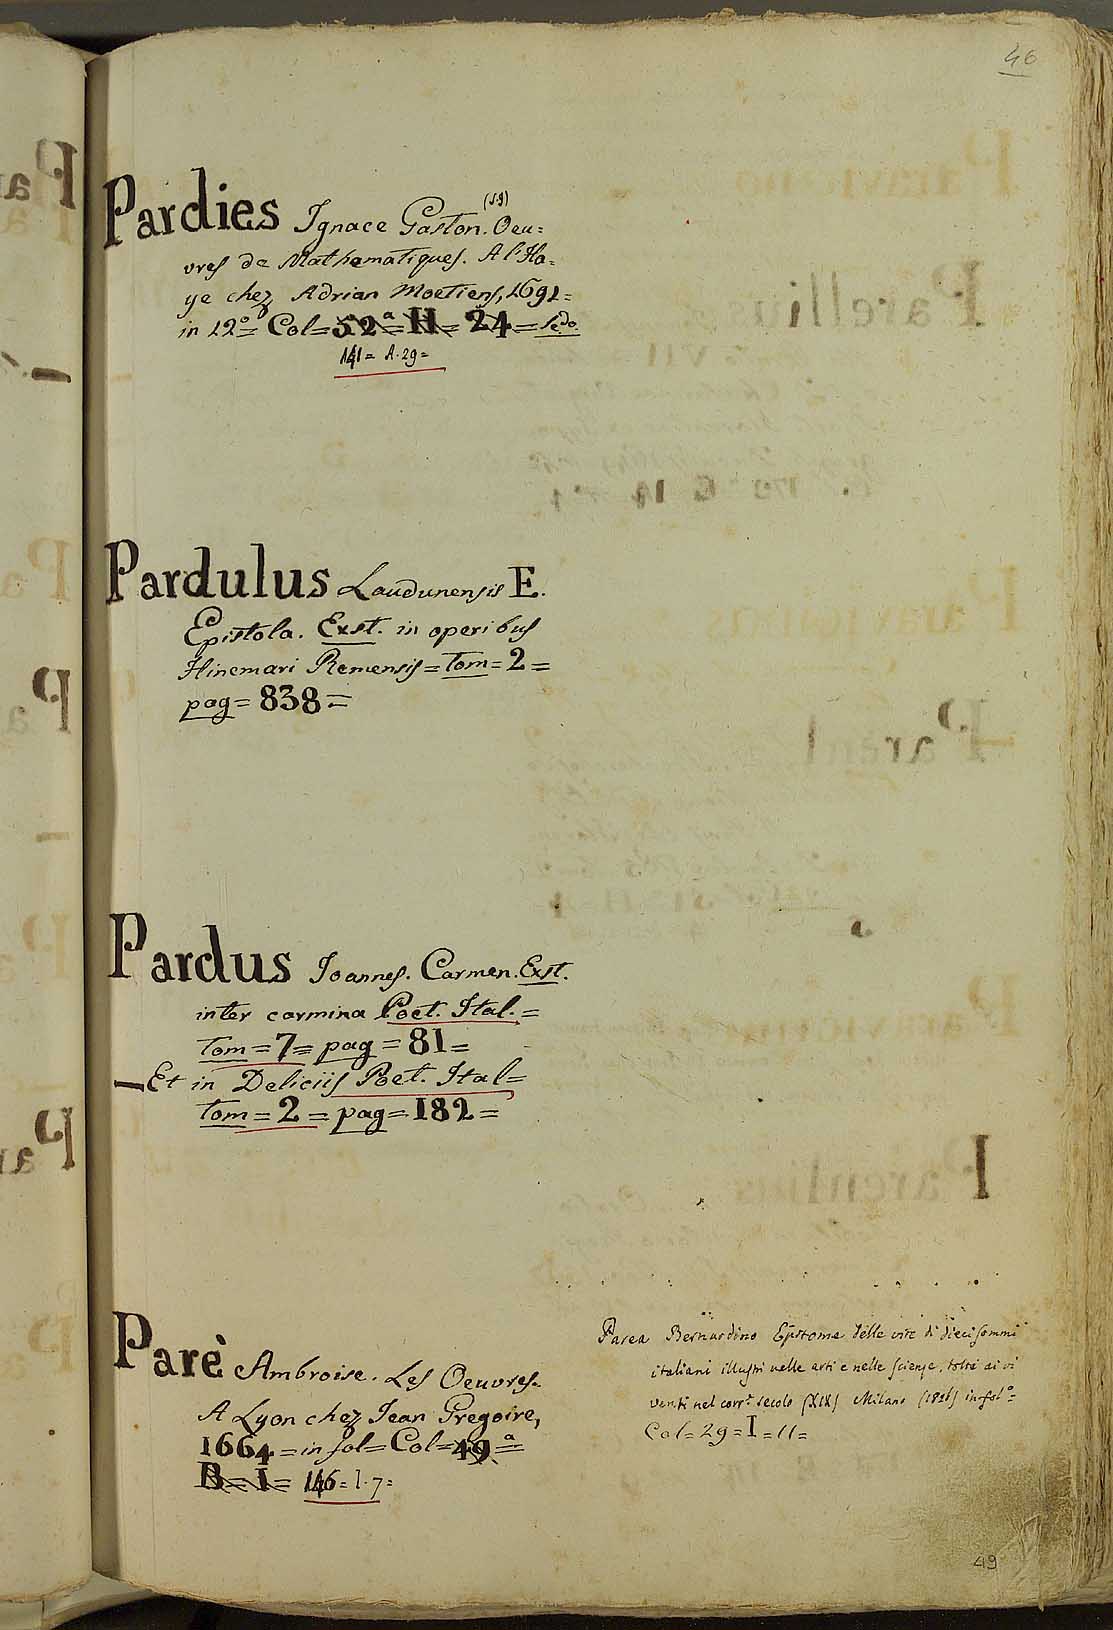 46
Pardies Ignace Gaston. (S.J) Oeu=
vres de Mathematiques. A l'Ha=
ye chez Adrian Moetiens, 1691=
in 12°= Col=52ª=H=24=Sedo.
141= A. 29=
Pardulus Laudunensis E.
Epistola. Exst. in operibus
Hincmari Remensis=Tom=2=
pag=838=
Pardus Ioannes. Carmen. Exst.
inter carmina Poet. Ital.=
Tom=7=pag=81=
—Et in Deliciis Poet. Ital=
Tom=2=pag=182=
Parè Ambroise. Les Oeuvres.
A Lyon chez Jean Gregoire,
1664=in fol=Col=49.ª=
B=I= 146=I.7=
Parea Bernardino Epitome delle vite di dieci sommi
italiani illustri nelle arti e nelle scienze, tolti ai vi
venti nel corr.e secolo (XIX) Milano in fol°=
Col=29=I=11=
49